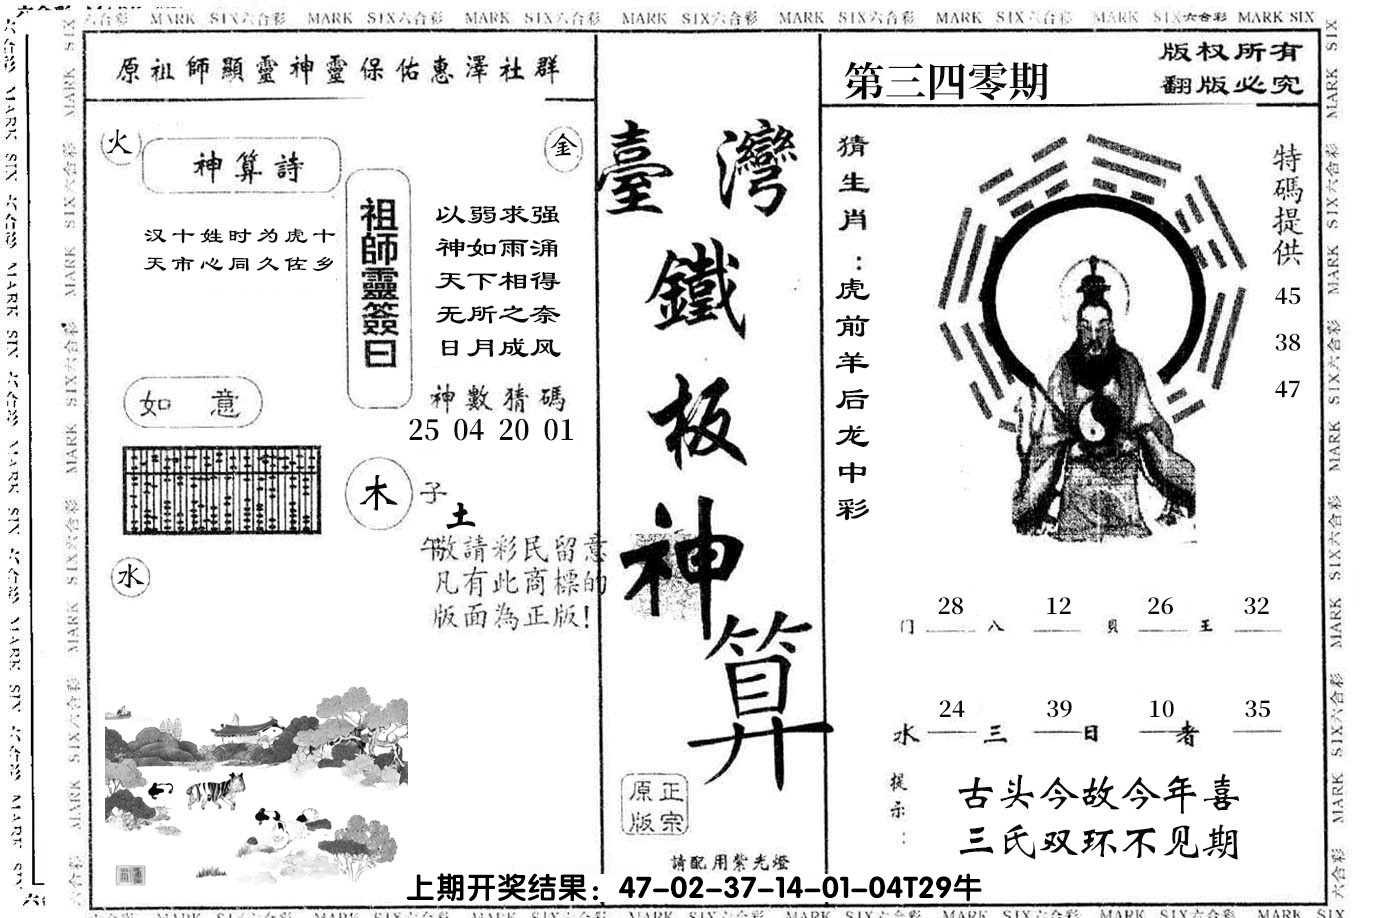 MARK SIX六合彩 MARK SIX六合彩 MARK SIX六合彩 MARK SIX六合彩 MARK SIX六合彩 MARK SIX六合彩 MARK SIX六合彩 MARK SIX
原祖師顯靈神靈保佑惠澤社群
火
神算詩
金
汉十姓时为虎十
天市心同久佐乡
祖師靈簽曰
以弱求强
神如雨涌
天下相得
无所之奈
日月成风
神數猜碼
25 04 20 01
如意
木
子
土
午
水
敬請彩民留意
凡有此商標的
版面為正版!
臺灣
鐵
板
神
算
正宗
原版
請配用紫光燈
第三四零期
版权所有
翻版必究
猜生肖：虎前羊后龙中彩
特碼提供
45
38
47
门 28 八 12 貝 26 王 32
水 24 三 39 日 10 者 35
提示：
古头今故今年喜
三氏双环不见期
上期开奖结果：47-02-37-14-01-04T29牛